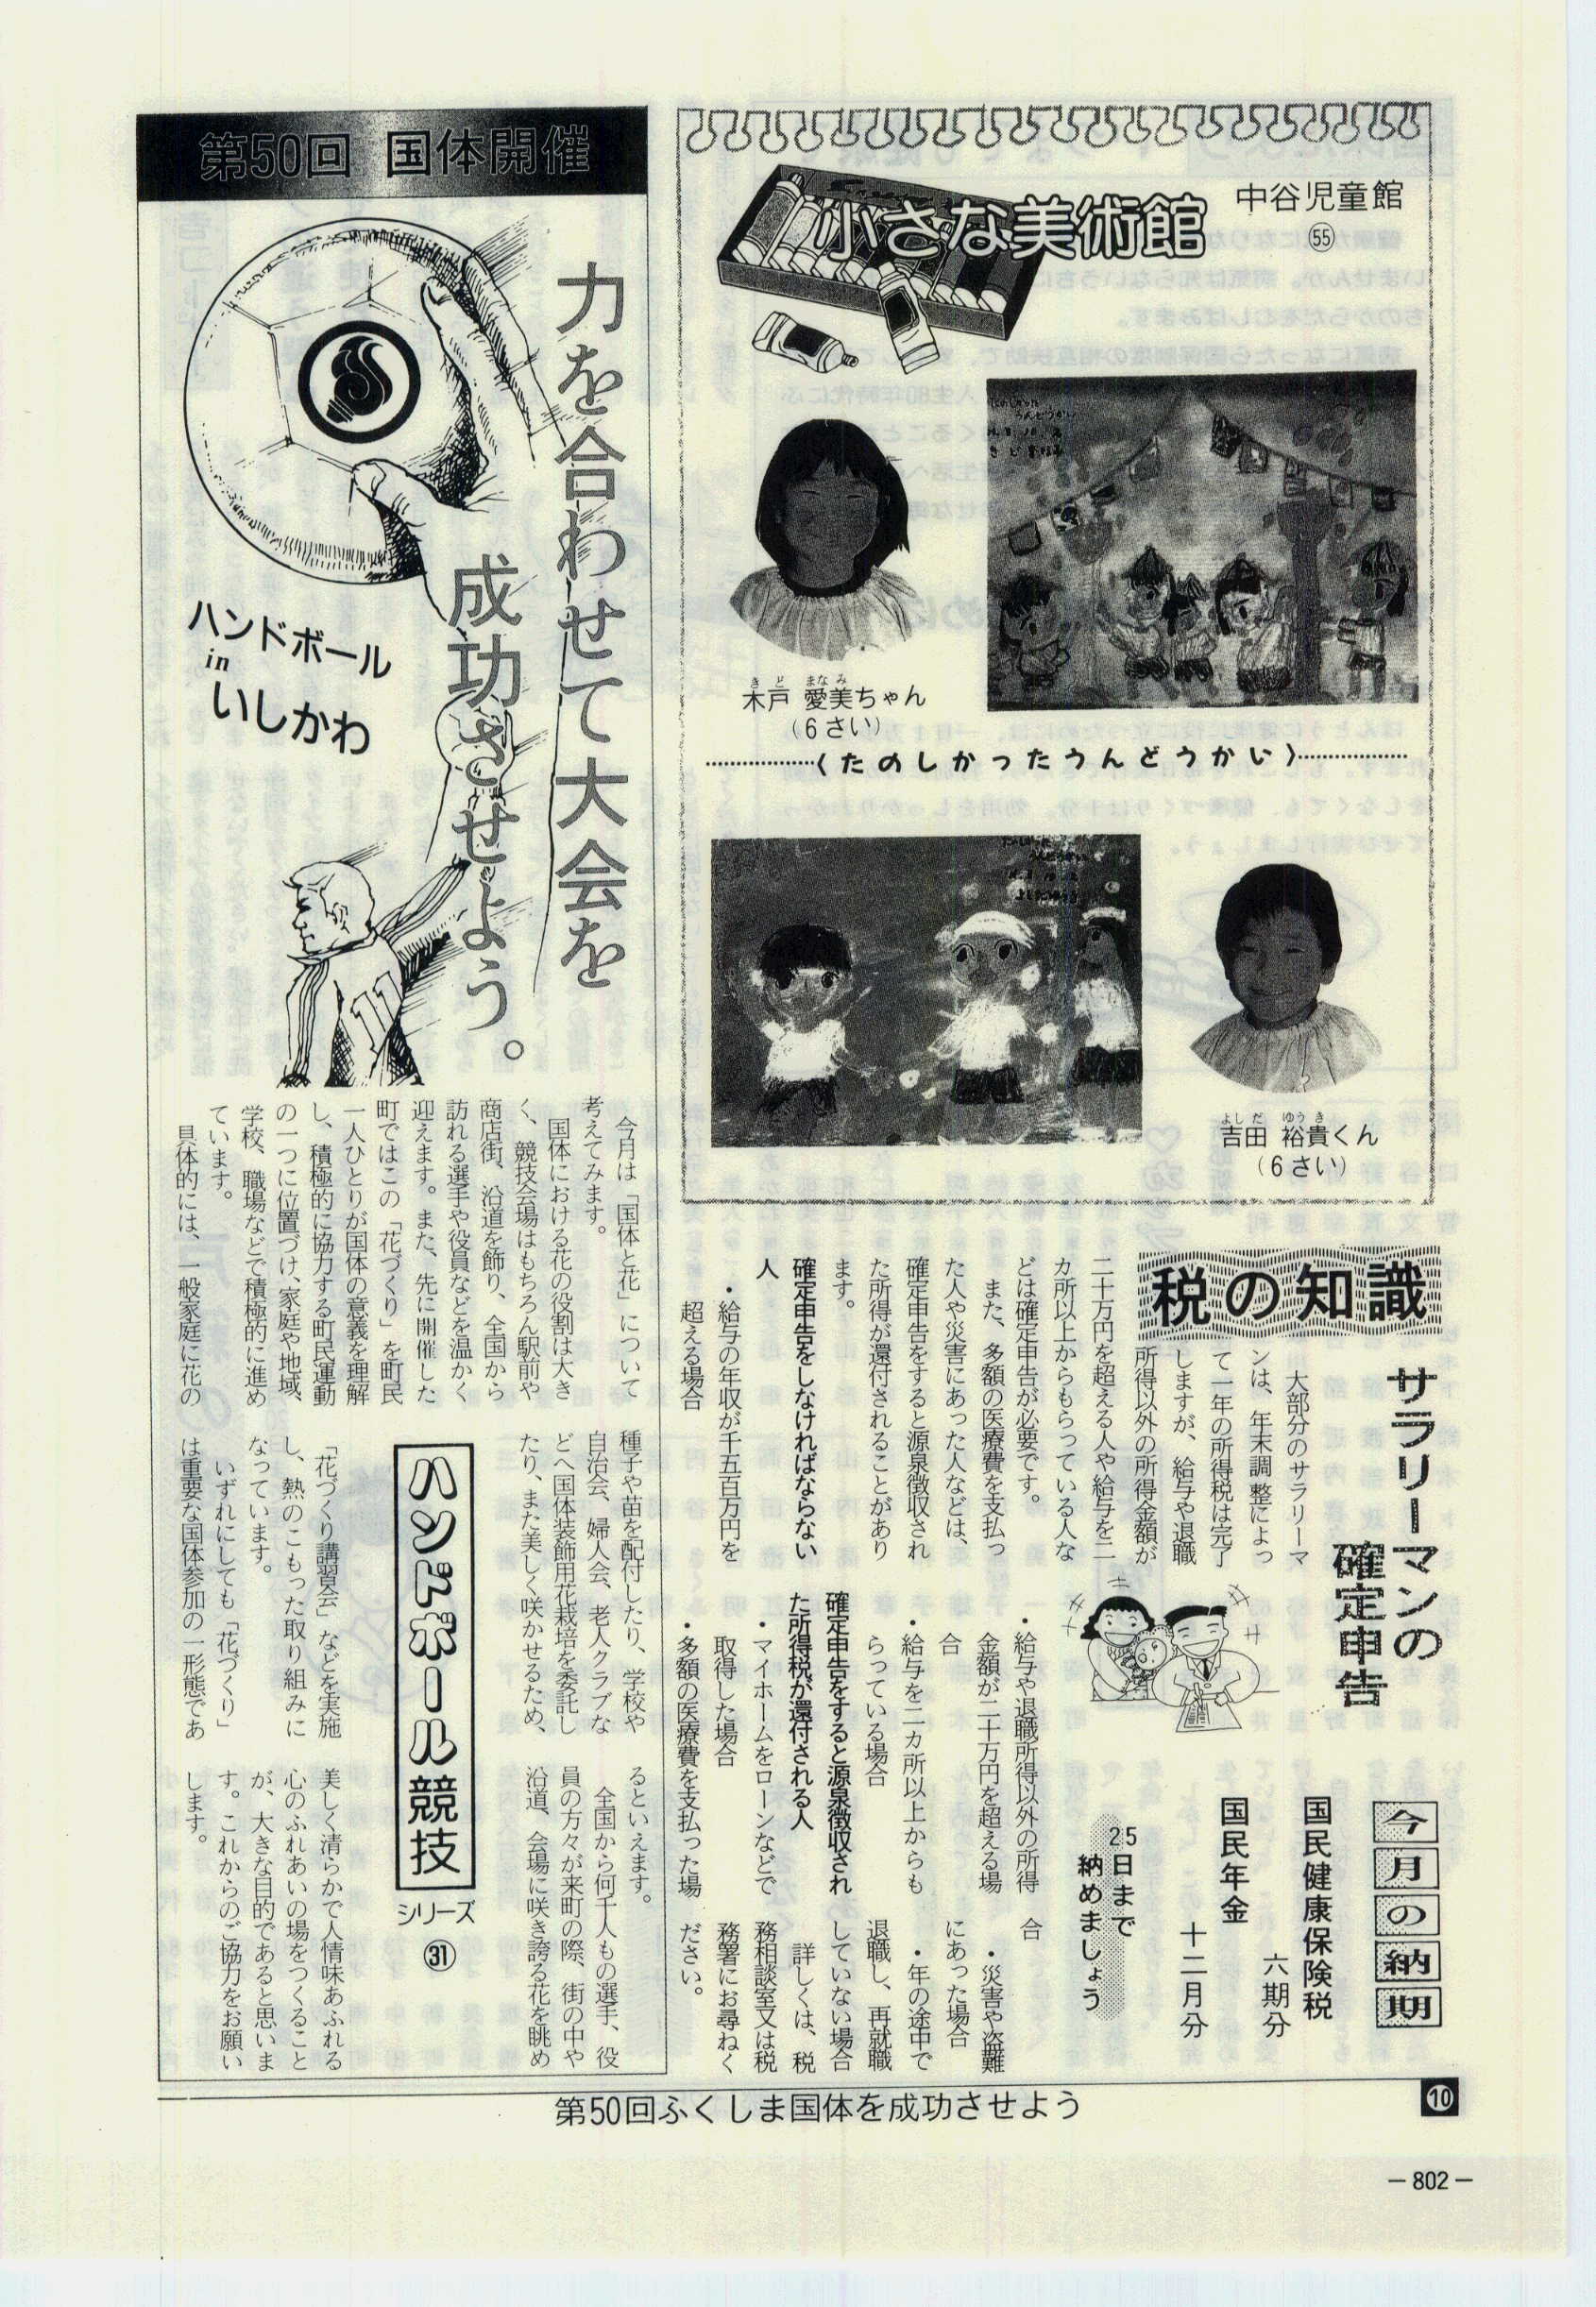 小さな美術館
中谷児童館
㊺
木戸 愛美ちゃん
きど まなみ
(6さい)
〈たのしかったうんどうかい〉
吉田 裕貴くん
よしだ ゆうき
(6さい)
税の知識
サラリーマンの
確定申告
大部分のサラリーマ
ンは、年末調整によっ
て一年の所得税は完了
しますが、給与や退職
所得以外の所得金額が
二十万円を超える人や給与を二
カ所以上からもらっている人な
どは確定申告が必要です。
また、多額の医療費を支払っ
た人や災害にあった人などは、
確定申告をすると源泉徴収され
た所得が還付されることがあり
ます。
確定申告をしなければならない
人
・給与の年収が千五百万円を
超える場合
・給与や退職所得以外の所得
金額が二十万円を超える場
合
・給与を二カ所以上からも
らっている場合
確定申告をすると源泉徴収され
た所得税が還付される人
・マイホームをローンなどで
取得した場合
・多額の医療費を支払った場
合
・災害や盗難
にあった場合
・年の途中で
退職し、再就職
していない場合
詳しくは、税
務相談室又は税
務署にお尋ねく
ださい。
今月の納期
国民健康保険税
六期分
国民年金
十二月分
25日まで
納めましょう
第50回 国体開催
力を合わせて大会を
成功させよう。
ハンドボール
in
いしかわ
11
今月は「国体と花」について
考えてみます。
国体における花の役割は大き
く、競技会場はもちろん駅前や
商店街、沿道を飾り、全国から
訪れる選手や役員などを温かく
迎えます。また、先に開催した
町ではこの「花づくり」を町民
一人ひとりが国体の意義を理解
し、積極的に協力する町民運動
の一つに位置づけ、家庭や地域、
学校、職場などで積極的に進め
ています。
具体的には、一般家庭に花の
種子や苗を配付したり、学校や
自治会、婦人会、老人クラブな
どへ国体装飾用花栽培を委託し
たり、また美しく咲かせるため、
「花づくり講習会」などを実施
し、熱のこもった取り組みに
なっています。
いずれにしても「花づくり」
は重要な国体参加の一形態であ
るといえます。
全国から何千人もの選手、役
員の方々が来町の際、街の中や
沿道、会場に咲き誇る花を眺め
美しく清らかで人情味あふれる
心のふれあいの場をつくること
が、大きな目的であると思いま
す。これからのご協力をお願い
します。
ハンドボール競技
シリーズ
㉛
第50回ふくしま国体を成功させよう
10
－802－